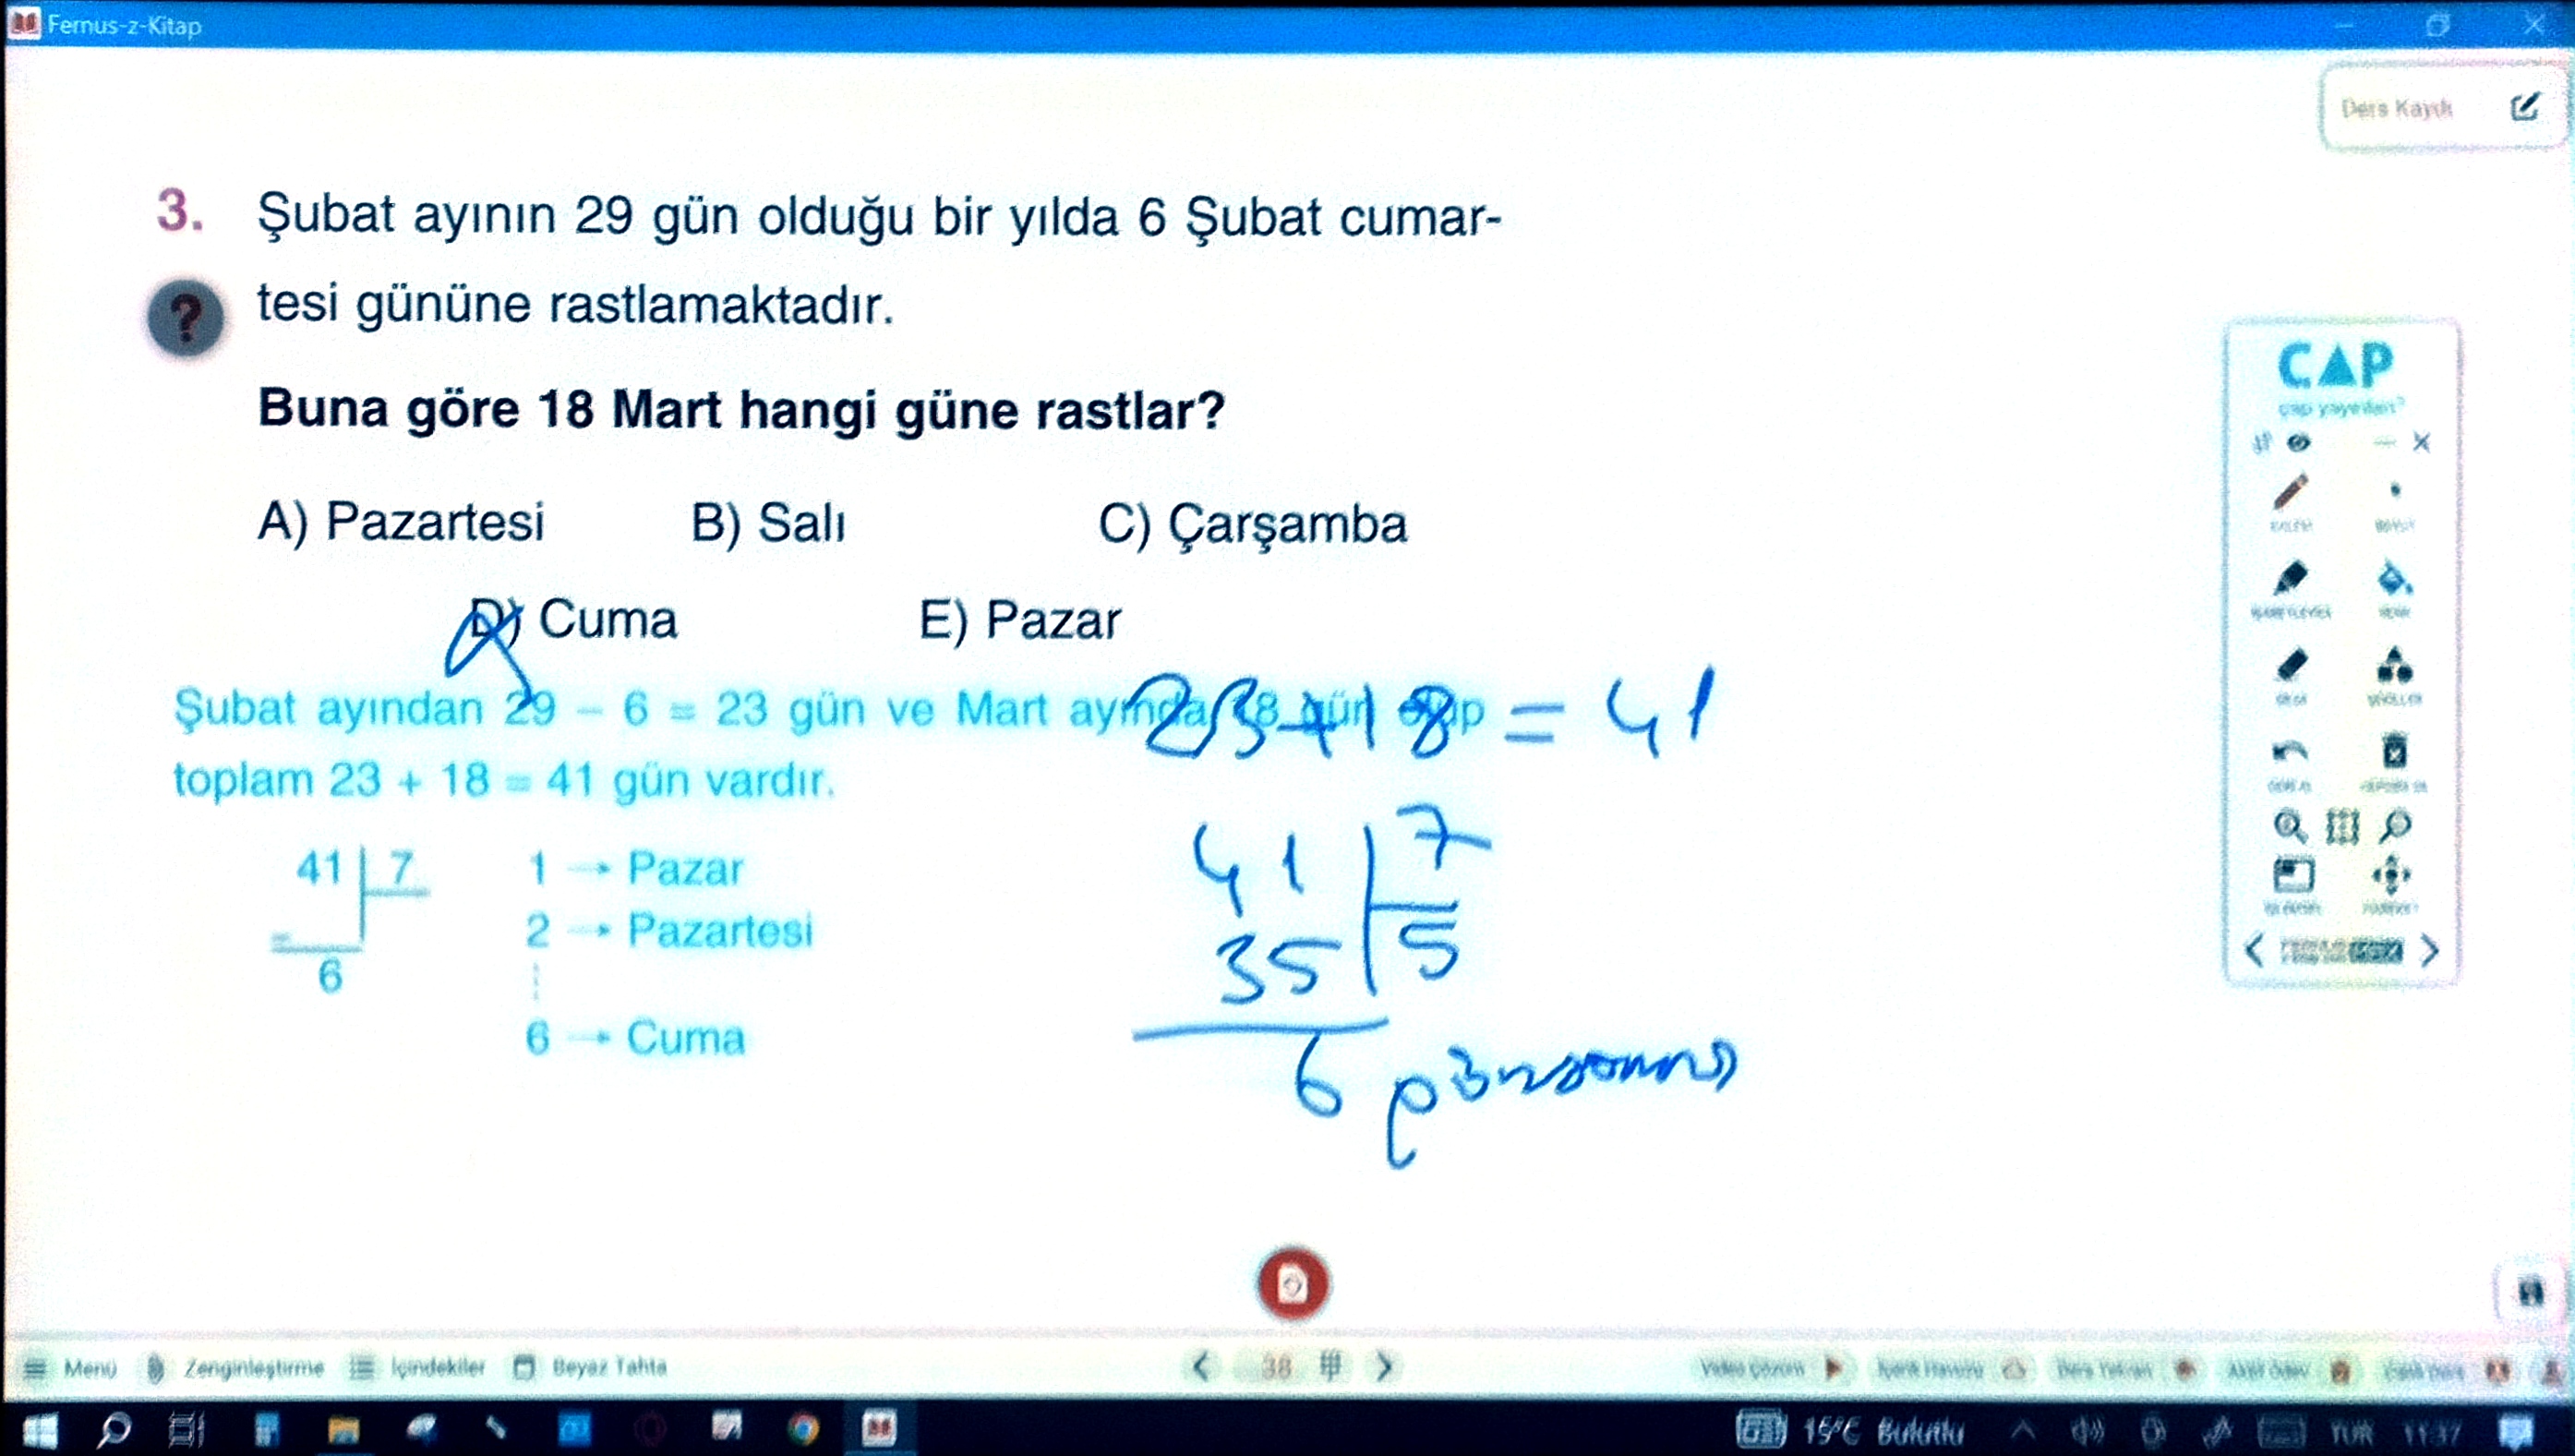 Fernus-z-Kitap
Ders Kaydı
3. Şubat ayının 29 gün olduğu bir yılda 6 Şubat cumar-
? tesi gününe rastlamaktadır.
Buna göre 18 Mart hangi güne rastlar?
A) Pazartesi B) Salı C) Çarşamba
D) Cuma E) Pazar
Şubat ayından 29 - 6 = 23 gün ve Mart ayında 18 gün olup
23+18 = 41
toplam 23 + 18 = 41 gün vardır.
41 7 1 → Pazar
2 → Pazartesi
6
6 → Cuma
41 7
35 5
6
CAP
çap yayınları
Menü Zenginleştirme İçindekiler Beyaz Tahta 38 Video Çözüm
15°C Bulutlu TUR 11:37